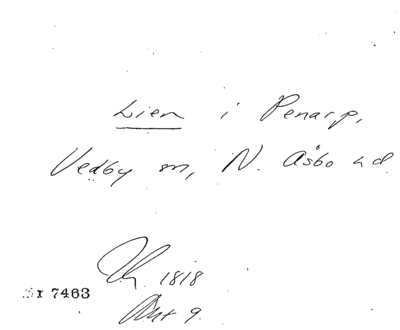 Lien i Penarp,
Vedby sn, N. Åsbo hd
1818
SI 7463